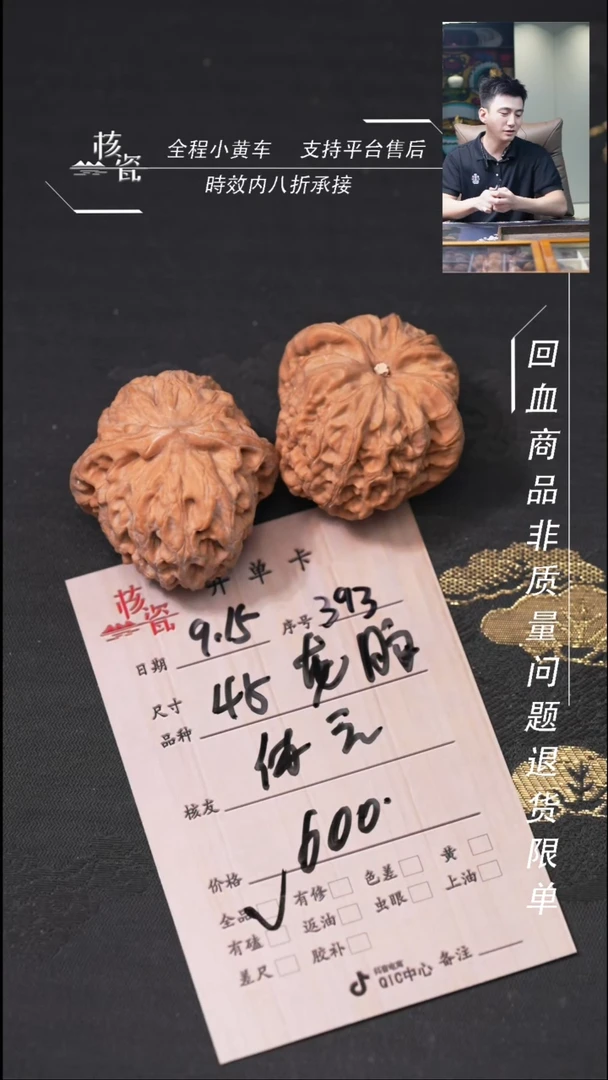 核瓷
全程小黄车 支持平台售后
時效内八折承接
回血商品非质量问题退货限单
开单卡
核瓷
日期 9.15 序号 393
尺寸 45
品种
核友
价格 600.
全品 有修 色差 黄
有磕 返油 虫眼 上油
差尺 胶补
抖音电商
QIC中心 备注